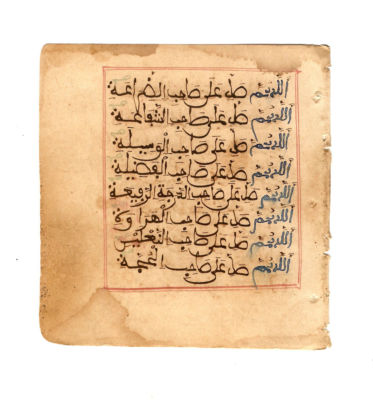 اللهم صل على صاحب الضراعة
اللهم صل على صاحب الشفاعة
اللهم صل على صاحب الوسيلة
اللهم صل على صاحب الفضيلة
اللهم صل على صاحب الدرجة الرفيعة
اللهم صل على صاحب الهراوة
اللهم صل على صاحب النعلين
اللهم صل على صاحب الحجة